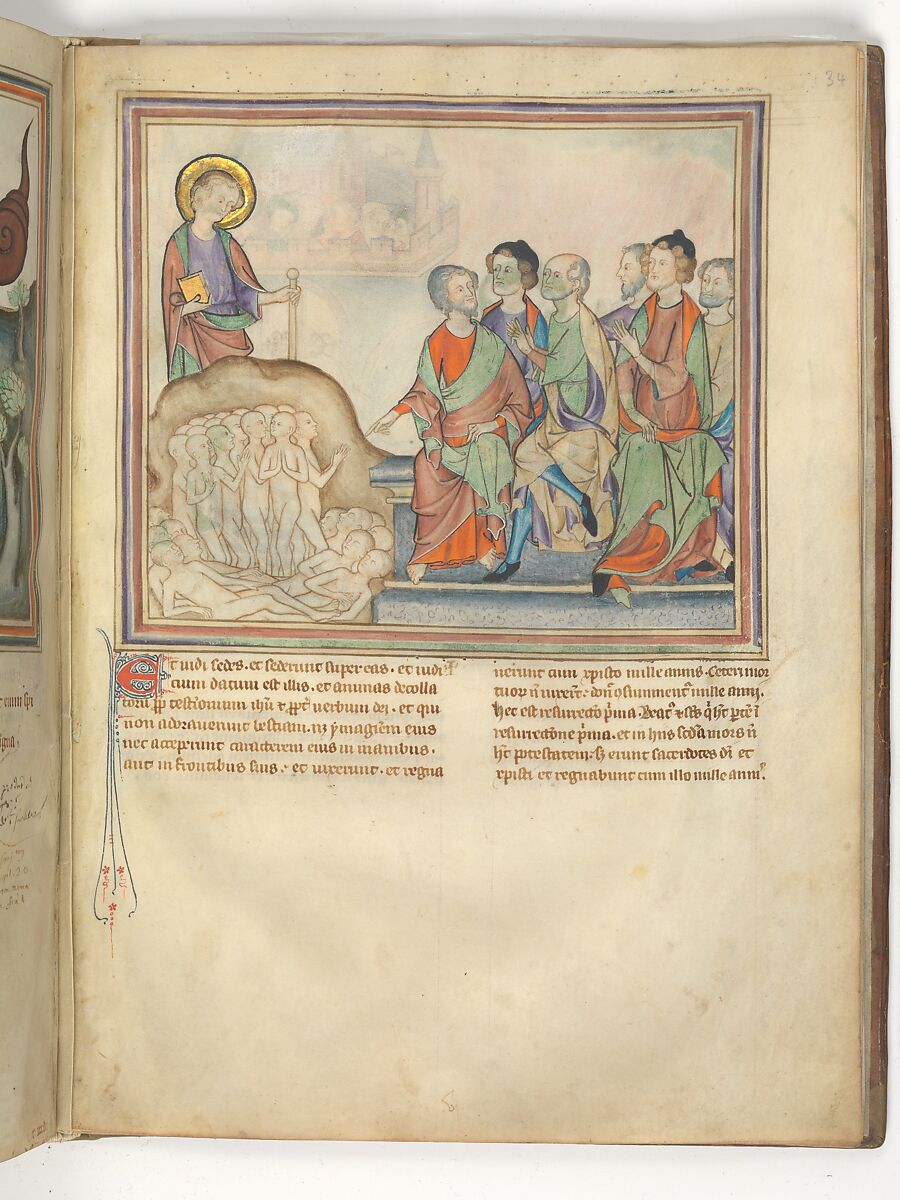 34
Et uidi sedes. et sederunt super eas. et iudi
cium datum est illis. et animas decolla
torum ꝓp testimonium ihu̅ ⁊ ꝓpt̕ uerbum dei. et qui
non adorauerunt bestiam. nec ymaginem eius
nec acceperunt caracterem eius in manibus.
aut in frontibus suis. et uixerunt. et regna
uerunt cum xpisto mille annis. Ceteri mor
tuor n̅ uixerūt. don̕ 9summent̕ mille anni.
Hec est resurrectō p̕ma. Beat⁹ ⁊ sc̄s q̕ ht̕ ꝑtē ī
resurrectione p̕ma. et in hiis sc̄da mors n̅
ht̕ potestatem. sꝫ erunt sacerdotes di̅ et
xpisti et regnabunt cum illo mille annis̕.